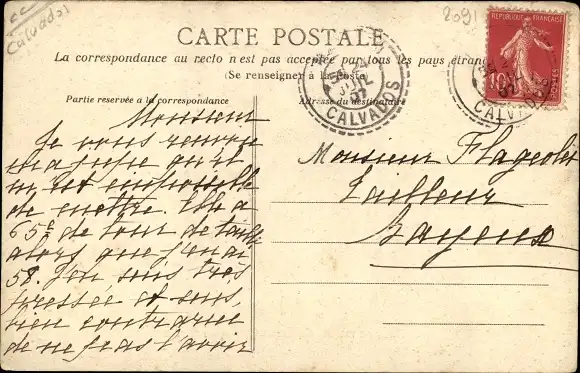 Calvados
2091
CARTE POSTALE
La correspondance au recto n'est pas acceptée par tous les pays étran
(Se renseigner à la Poste)
Partie réservée à la correspondance
Adresse du destinataire
RÉPUBLIQUE FRANÇAISE
10
POSTES
07
CALVADOS
CALVADOS
Monsieur
Je vous renvoie
ma jupe qu'il
m'est impossible
de mettre. Elle a
65c de tour de taille
alors que j'en ai
58. J'en suis très
pressée et suis
bien contrariée
de ne pas l'avoir
Monsieur Flageolet
Tailleur
Bayeux